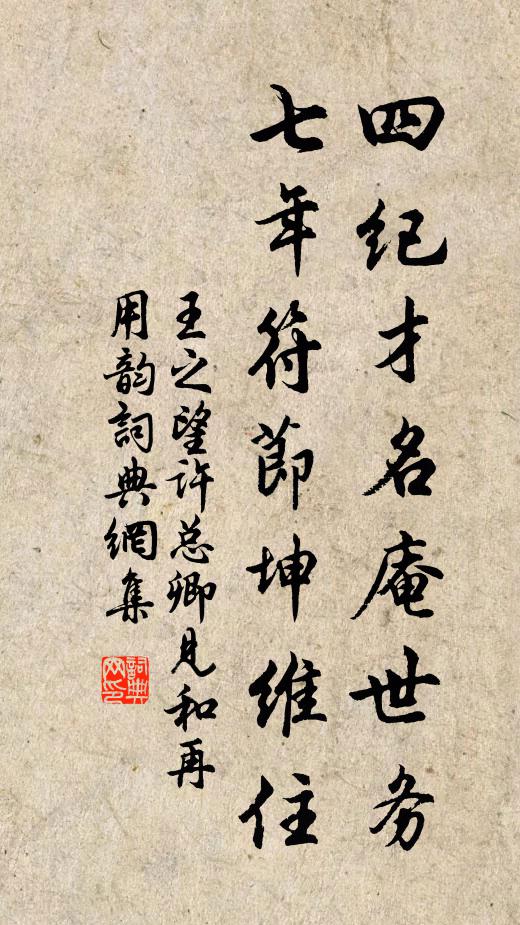 四纪才名庵世务
七年符節坤维住
王之望许总卿見和再
用韵詞典網集
詞典网印